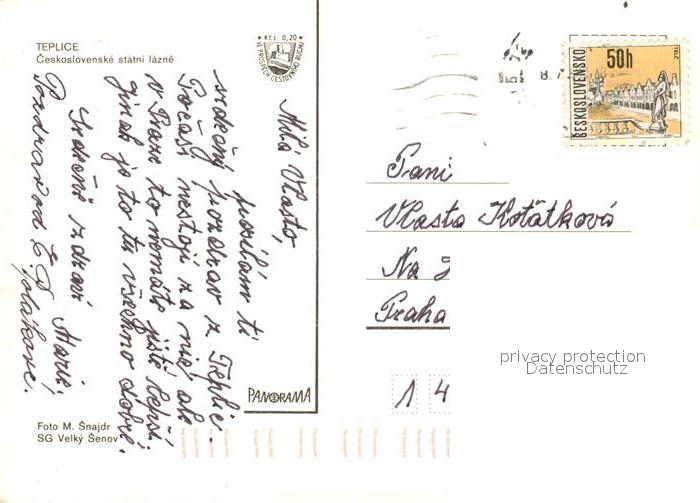 TEPLICE
Československé státní lázně
Kčs 0,20
VE PROSPĚCH CESTOVNÍHO RUCHU
Milá Vlasto,
posílám ti
srdečný pozdrav z Teplic.
Počasí nestojí za nic ale
v Praze to nemáte jistě lepší
jinak je to tu všechno dobré.
Srdečně zdraví Marie.
Pozdrav od
PANORAMA
Foto M. Šnajdr
SG Velký Šenov
ČESKOSLOVENSKO
50h
TELČ
8.7
Paní
Vlasta Koťátková
Na
Praha
1 4
privacy protection
Datenschutz